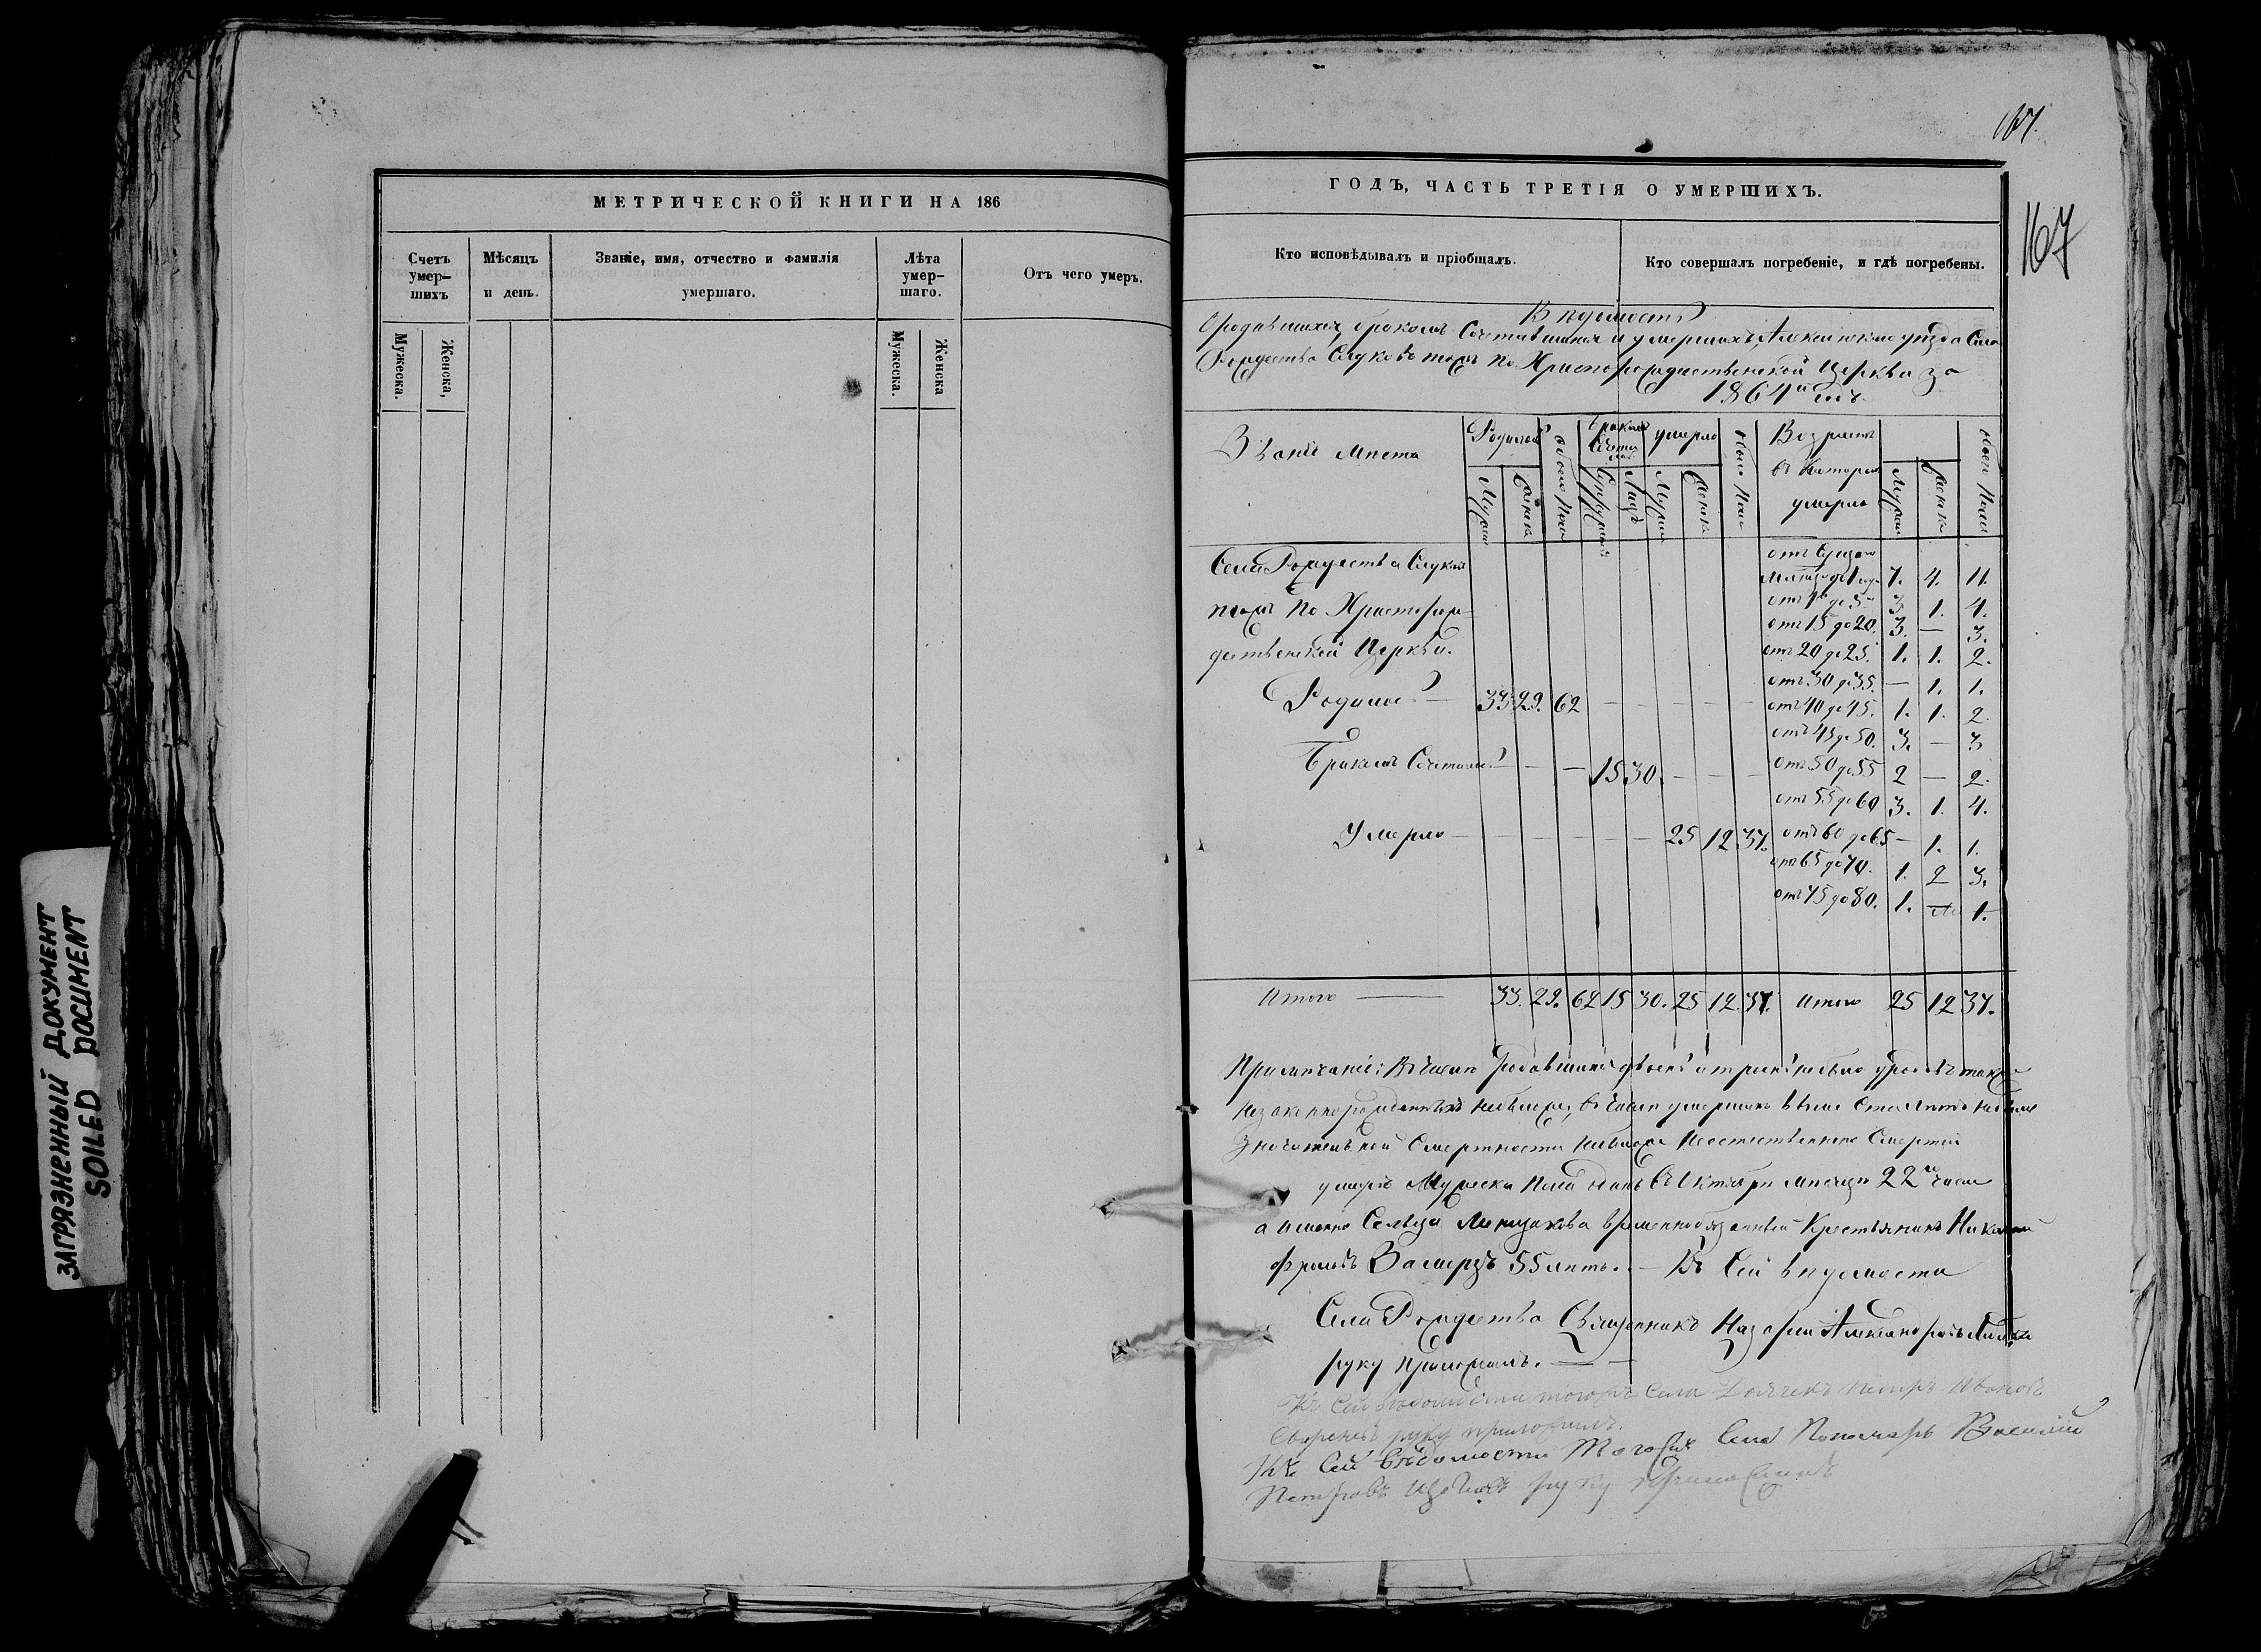 МЕТРИЧЕСКОЙ КНИГИ НА 186
Счетъ умер-шихъ
Мѣсяцъ и день.
Званіе, имя, отчество и фамилія умершаго.
Лѣта умер-шаго.
Отъ чего умеръ.
Мужеска.
Женска,
Мужеска.
Женска
ЗАГРЯЗНЕННЫЙ ДОКУМЕНТ
SOILED DOCUMENT
167.
167
ГОДЪ, ЧАСТЬ ТРЕТІЯ О УМЕРШИХЪ.
Кто исповѣдывалъ и пріобщалъ.
Кто совершалъ погребеніе, и гдѣ погребены.
Вѣдомость
О родившихся, бракомъ сочетавшихся и умершихъ, Алексинскаго уѣзда Села
Рождества Слуковъ тожъ по Христорождественской Церкви за
1864й годъ.
Званіе мѣста
Родилось Мужска Женска обоего пола
Бракомъ сочеталось Супружествъ Лицъ
умерло Мужска Женска обоего пола
Возрастъ въ которомъ умерло Мужска Женска обоего пола
Села Рождества Слуки
тожъ по Христорож-
дественской Церкви.
Родилось — 33. 29. 62
Бракомъ Сочеталось — 15. 30.
Умерло — 25 12 37.
мѣсяца до 1 года 7. 4. 11.
отъ 1го до 5ти 3 1. 4.
отъ 15 до 20. 3. — 3.
отъ 20 до 25. 1. 1. 2.
отъ 30 до 35. — 1. 1.
отъ 40 до 45. 1. 1. 2.
отъ 45 до 50. 3. — 3
отъ 50 до 55 2 — 2.
отъ 55 до 60 3. 1. 4.
отъ 60 до 65 — 1. 1.
отъ 65 до 70. 1. 2 3.
отъ 75 до 80. 1. — 1.
Итого — 33. 29. 62 15 30. 25 12. 37. Итого 25 12 37.
Примѣчаніе: Въ числѣ родившихся двоень и троень небыло уродовъ также
незаконнорожденныхъ небыло, въ числѣ умершихъ выше ста лѣтъ небыло
значительной смертности небыло неестественною смертію
умеръ Мужеска пола одинъ въ Октябрѣ мѣсяцѣ 22го числа
а именно Сельца временнообязанный Крестьянинъ Николай
Фроловъ Замерзъ 55 лѣтъ. — Къ сей вѣдомости
Села Рождества Священникъ Назарій Александровъ
руку приложилъ. —
Къ сей вѣдомости тогожъ села Дьячекъ Петръ Ивановъ
руку приложилъ.
Къ сей вѣдомости тогожъ села Пономарь Василій
Петровъ руку приложилъ